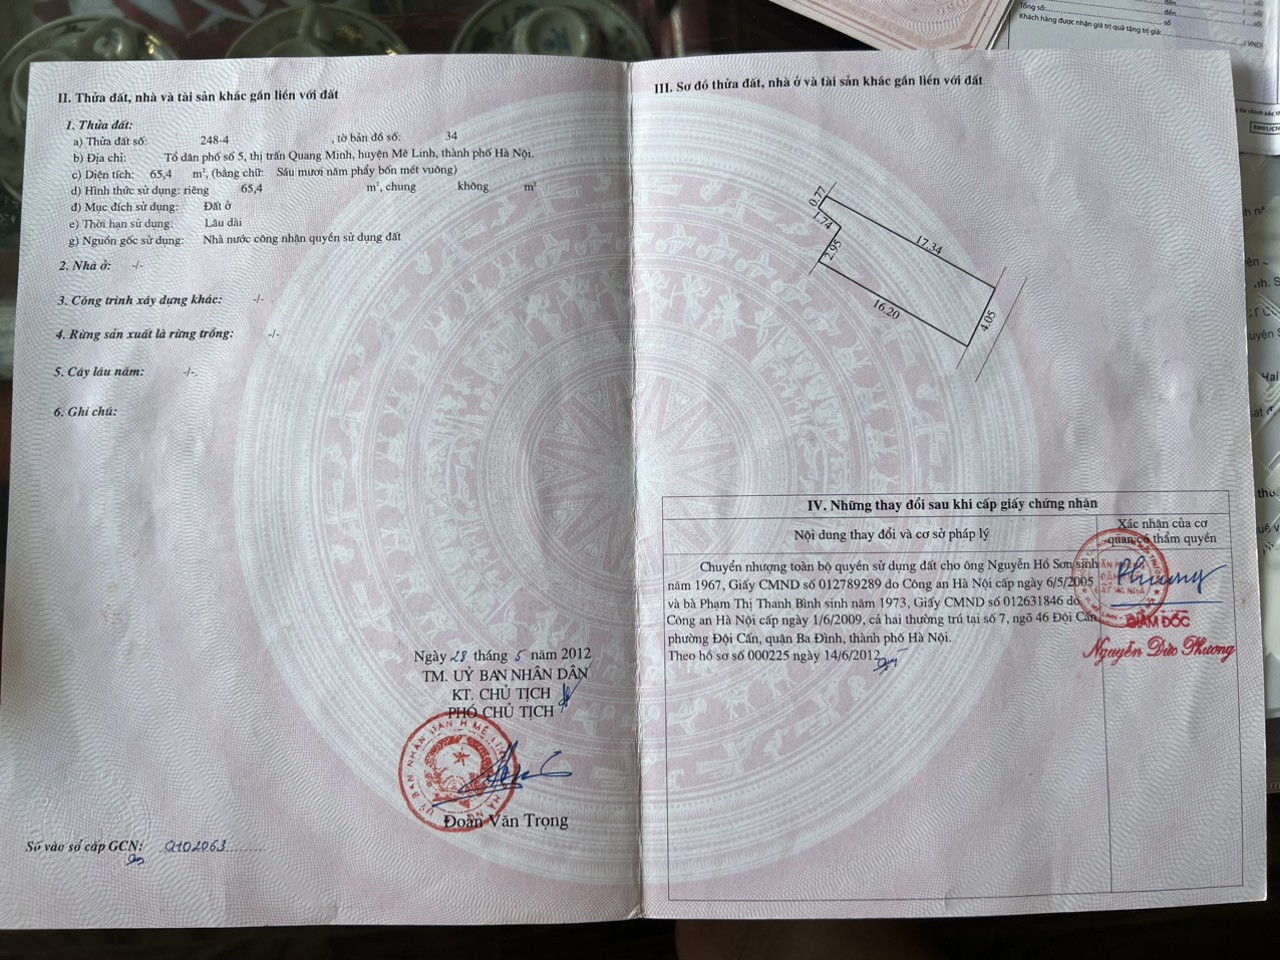 II. Thửa đất, nhà và tài sản khác gắn liền với đất
1. Thửa đất:
a) Thửa đất số: 248-4 , tờ bản đồ số: 34
b) Địa chỉ: Tổ dân phố số 5, thị trấn Quang Minh, huyện Mê Linh, thành phố Hà Nội.
c) Diện tích: 65,4 m², (bằng chữ: Sáu mươi năm phẩy bốn mét vuông)
d) Hình thức sử dụng: riêng 65,4 m², chung không m²
đ) Mục đích sử dụng: Đất ở
e) Thời hạn sử dụng: Lâu dài
g) Nguồn gốc sử dụng: Nhà nước công nhận quyền sử dụng đất
2. Nhà ở: -/-
3. Công trình xây dựng khác: -/-
4. Rừng sản xuất là rừng trồng: -/-
5. Cây lâu năm: -/-.
6. Ghi chú:
Ngày 28 tháng 5 năm 2012
TM. UỶ BAN NHÂN DÂN
KT. CHỦ TỊCH
PHÓ CHỦ TỊCH
Đoàn Văn Trọng
Số vào sổ cấp GCN:
III. Sơ đồ thửa đất, nhà ở và tài sản khác gắn liền với đất
0.77
1.74
2.95
17.34
16.20
4.05
IV. Những thay đổi sau khi cấp giấy chứng nhận
Nội dung thay đổi và cơ sở pháp lý
Xác nhận của cơ
quan có thẩm quyền
Chuyển nhượng toàn bộ quyền sử dụng đất cho ông Nguyễn Hồ Sơn sinh
năm 1967, Giấy CMND số 012789289 do Công an Hà Nội cấp ngày 6/5/2005
và bà Phạm Thị Thanh Bình sinh năm 1973, Giấy CMND số 012631846 do
Công an Hà Nội cấp ngày 1/6/2009, cả hai thường trú tại số 7, ngõ 46 Đội Cấn,
phường Đội Cấn, quận Ba Đình, thành phố Hà Nội.
Theo hồ sơ số 000225 ngày 14/6/2012
GIÁM ĐỐC
Nguyễn Đức Phương
Tổng số:
Khách hàng được nhận giá trị quà tặng trị giá:
(VND)